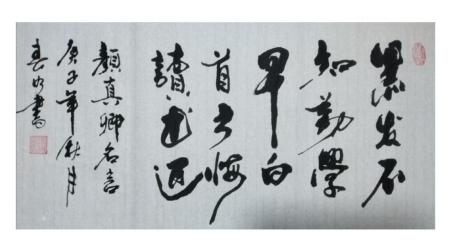 黑发不
知勤學
早白
首方悔
讀书迟
顏真卿名言
庚子年秋月
書